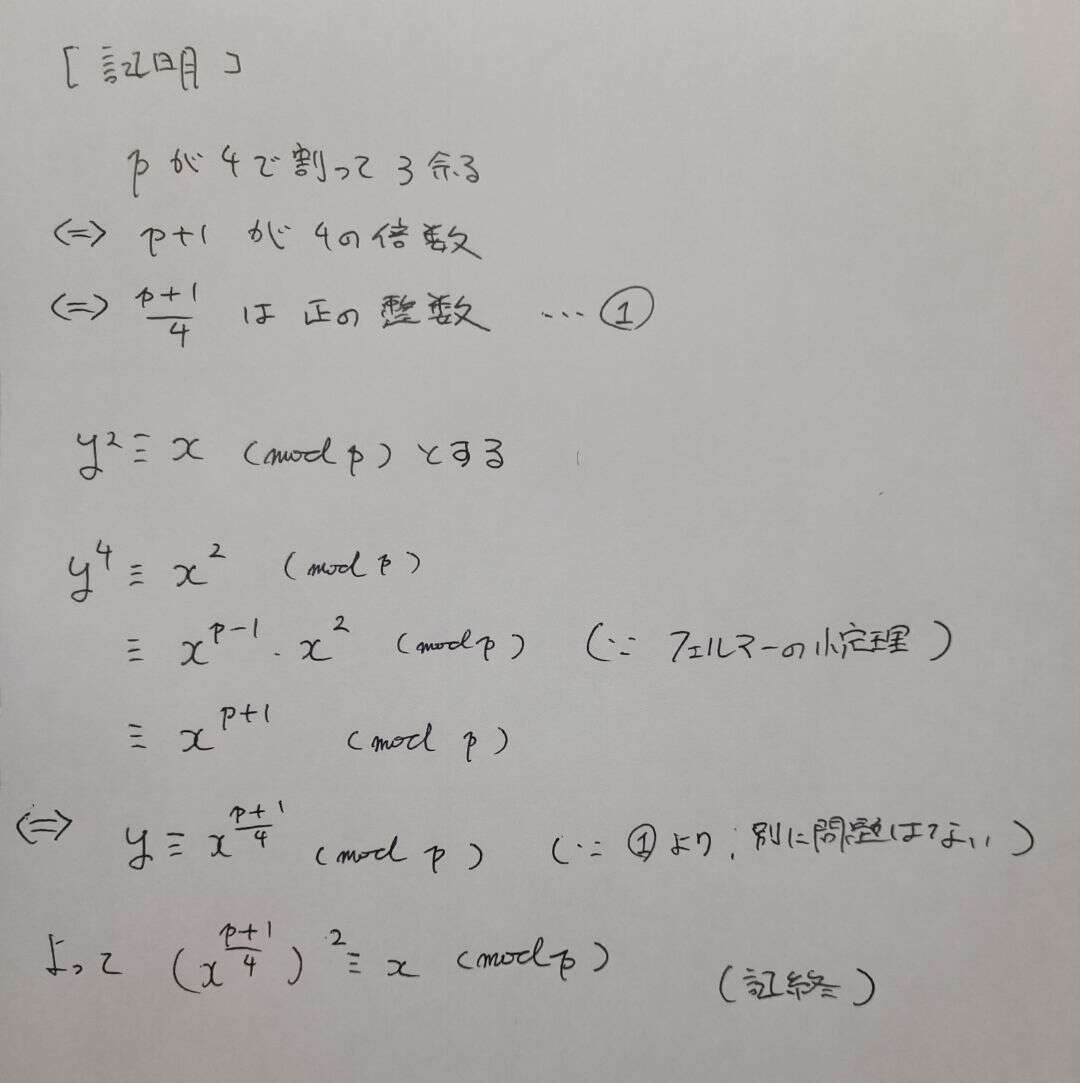 [証明]
pが4で割って3余る
⇔ p+1 が 4の倍数
⇔ \frac{p+1}{4} は 正の整数 … ①
y² ≡ x (mod p) とする
y⁴ ≡ x² (mod p)
≡ x^{p-1} · x² (mod p) (∵ フェルマーの小定理)
≡ x^{p+1} (mod p)
⇔ y ≡ x^{\frac{p+1}{4}} (mod p) (∵ ①より, 別に問題はない)
よって (x^{\frac{p+1}{4}})² ≡ x (mod p)
(証終)